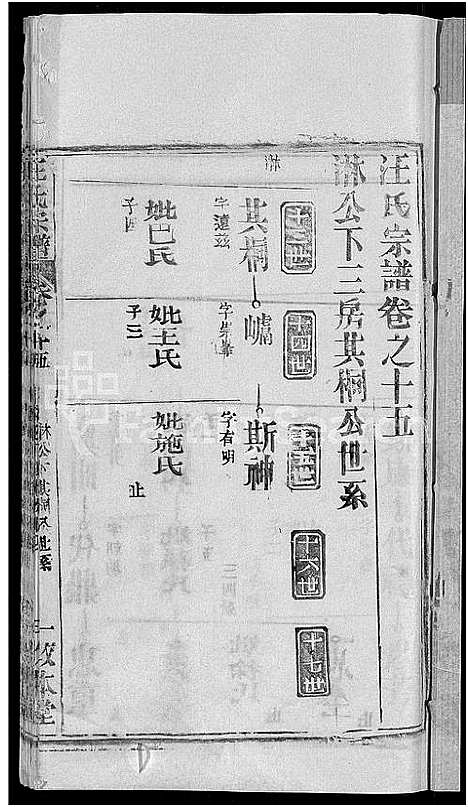 汪氏宗譜卷之十五
淋公下三房其桐公世系
十三世
十四世
十五世
十六世
十七世
淋
其桐
字遠茲
妣巴氏
子四
嶠
妣王氏
子三
斯神
字有明
妣施氏
止
汪氏宗譜
卷之十五
淋公下其桐公世系
一
敬本堂
FamilySearch